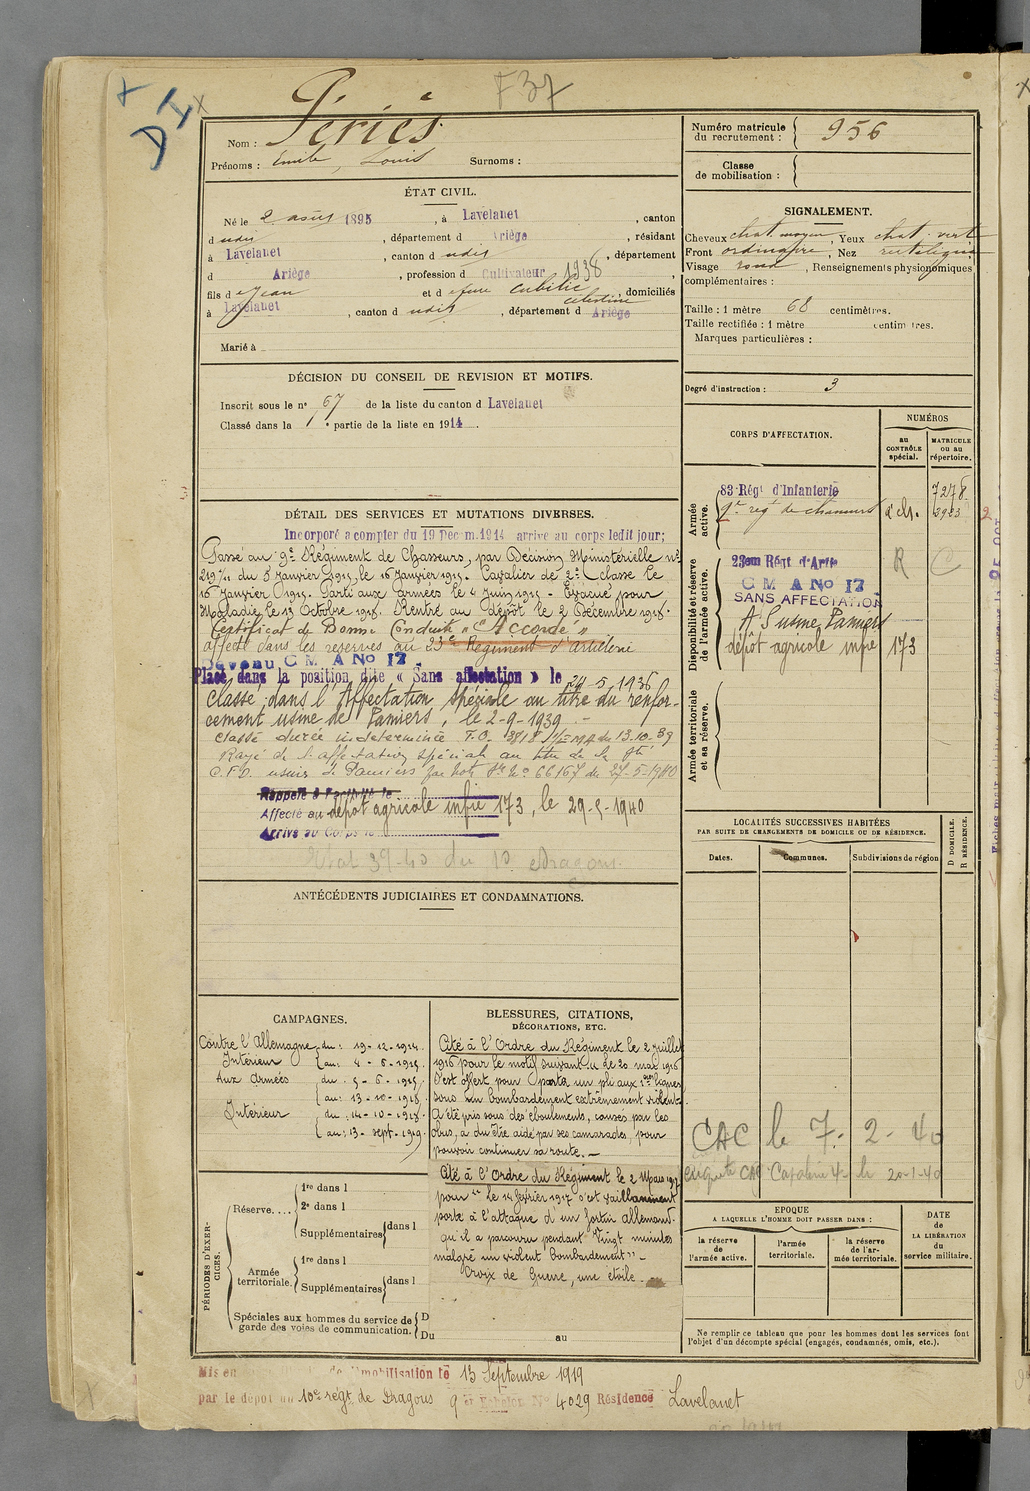 F37
DI
Nom : Périès
Prénoms : Emile, Louis Surnoms :
Numéro matricule du recrutement : 956
Classe de mobilisation :
ÉTAT CIVIL.
Né le 2 août 1895, à Lavelanet, canton
dudit, département d Ariège, résidant
à Lavelanet, canton dudit, département
d Ariège, profession d Cultivateur 1938
fils d Jean et d feue Cubilié Célestine, domiciliés
à Lavelanet, canton dudit, département d Ariège
Marié à
SIGNALEMENT.
Cheveux chat. moyen, Yeux chat. vert
Front ordinaire, Nez rectiligne
Visage rond, Renseignements physionomiques
complémentaires :
Taille : 1 mètre 68 centimètres.
Taille rectifiée : 1 mètre centimètres.
Marques particulières :
Degré d'instruction : 3
DÉCISION DU CONSEIL DE REVISION ET MOTIFS.
Inscrit sous le n° 67 de la liste du canton d Lavelanet
Classé dans la 1e partie de la liste en 1914.
CORPS D'AFFECTATION.
NUMÉROS
au CONTRÔLE spécial.
MATRICULE ou au répertoire.
Armée active.
83 Régt d'Infanterie 7278
9e régt de chasseurs à ch.
Disponibilité et réserve de l'armée active.
23em Régt d'Artie R C
C M A No 17
SANS AFFECTATION
A S usine Pamiers
dépôt agricole infie 173
Armée territoriale et sa réserve.
DÉTAIL DES SERVICES ET MUTATIONS DIVERSES.
Incorporé à compter du 19 Décem. 1914 arrivé au corps ledit jour;
Passé au 9e Régiment de Chasseurs, par Décision Ministérielle n°
219 1/11 du 8 Janvier 1915, le 16 Janvier 1915. Cavalier de 2e classe le
16 Janvier 1915. Parti aux armées le 4 Juin 1915 - Evacué pour
Maladie le 13 Octobre 1918. Rentré au dépôt le 2 Décembre 1918.
Certificat de Bonne Conduite "Accordé"
affecté dans les réserves au 23e Régiment d'artillerie
Devenu C M A No 17
Placé dans la position dite « Sans affectation » le 24-5-1936
Classé dans l'Affectation Spéciale au titre du renfor-
cement usine de Pamiers, le 2-9-1939.-
Classé durée indéterminée T.O. 3818 du 13.10.39
Rayé de l'affectation spéciale au titre de la
usines de Pamiers par note N° 66167 du 27-5-1940
Rappelé à l'activité le
Affecté au dépôt agricole infie 173, le 29-5-1940
Arrivé au Corps le
Etat 39-40 du D. Dragons.
LOCALITÉS SUCCESSIVES HABITÉES
PAR SUITE DE CHANGEMENTS DE DOMICILE OU DE RÉSIDENCE.
Dates. Communes. Subdivisions de région
D DOMICILE.
R RÉSIDENCE.
CAC le 7-2-40
le 20-1-40
ANTÉCÉDENTS JUDICIAIRES ET CONDAMNATIONS.
CAMPAGNES.
Contre l'Allemagne du : 19-12-1914.
Intérieur au : 4-6-1915.
Aux Armées du : 5-6-1915.
au : 13-10-1918.
Intérieur du : 14-10-1918.
au : 13-sept-1919.
BLESSURES, CITATIONS,
DÉCORATIONS, ETC.
Cité à l'Ordre du Régiment le 2 juillet
1916 pour le motif suivant : le 20 mai 1916
S'est offert pour porter un pli aux 1ères lignes
sous un bombardement extrêmement violent.
A été pris sous des éboulements, causés par les
obus, a du être aidé par ses camarades, pour
pouvoir continuer sa route.-
Cité à l'Ordre du Régiment le 2 Mars 1917
pour "Le 14 février 1917 s'est vaillamment
porté à l'attaque d'un fortin allemand.
qu'il a parcouru pendant vingt minutes
malgré un violent bombardement" -
Croix de Guerre, une étoile.
PÉRIODES D'EXERCICES.
Réserve.... 1re dans l
2e dans l
Supplémentaires dans l
Armée territoriale. 1re dans l
Supplémentaires dans l
Spéciales aux hommes du service de garde des voies de communication. D
Du au
EPOQUE
A LAQUELLE L'HOMME DOIT PASSER DANS :
la réserve de l'armée active.
l'armée territoriale.
la réserve de l'armée territoriale.
DATE de LA LIBÉRATION du service militaire.
Ne remplir ce tableau que pour les hommes dont les services font
l'objet d'un décompte spécial (engagés, condamnés, omis, etc.).
Mis en de démobilisation le 13 Septembre 1919
par le dépôt du 10e régt de Dragons 9e Echelon No 4029 Résidence Lavelanet